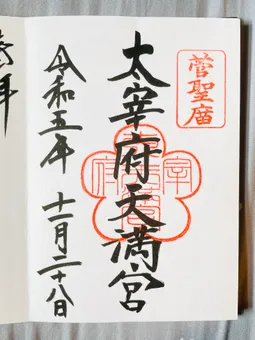 菅聖廟
太宰府天満宮
令和五年 十一月二十八日